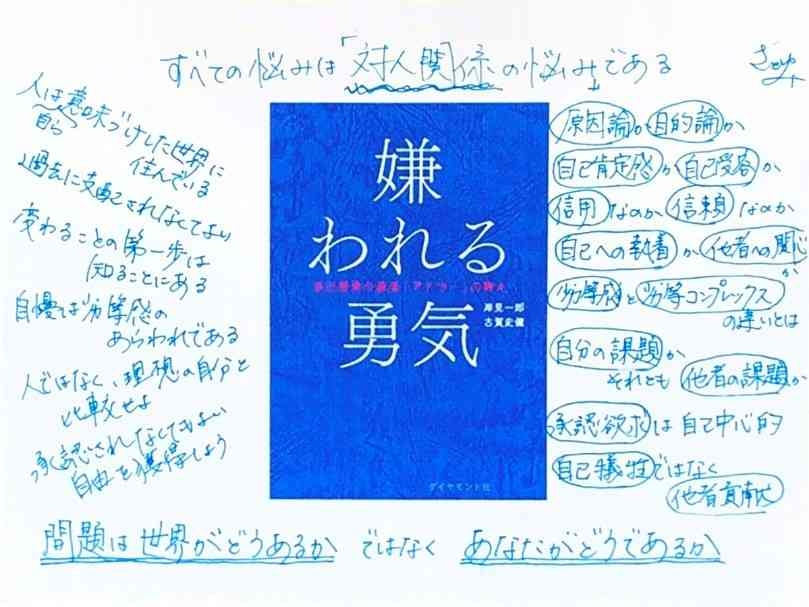 すべての悩みは「対人関係の悩み」である
人は意味づけした世界に
自ら
住んでいる
過去に支配されなくてよい
変わることの第一歩は
知ることにある
自慢は劣等感の
あらわれである
人ではなく、理想の自分と
比較せよ
承認されなくてもよい
自由を獲得しよう
嫌
われる
勇気
自己啓発の源流「アドラー」の教え
岸見一郎
古賀史健
ダイヤモンド社
原因論か目的論か
自己肯定感か自己受容か
信用なのか信頼なのか
自己への執着か他者への関心
か
劣等感と劣等コンプレックス
の違いとは
自分の課題か
それとも他者の課題か
承認欲求は自己中心的
自己犠牲ではなく
他者貢献だ
問題は世界がどうあるかではなくあなたがどうであるか